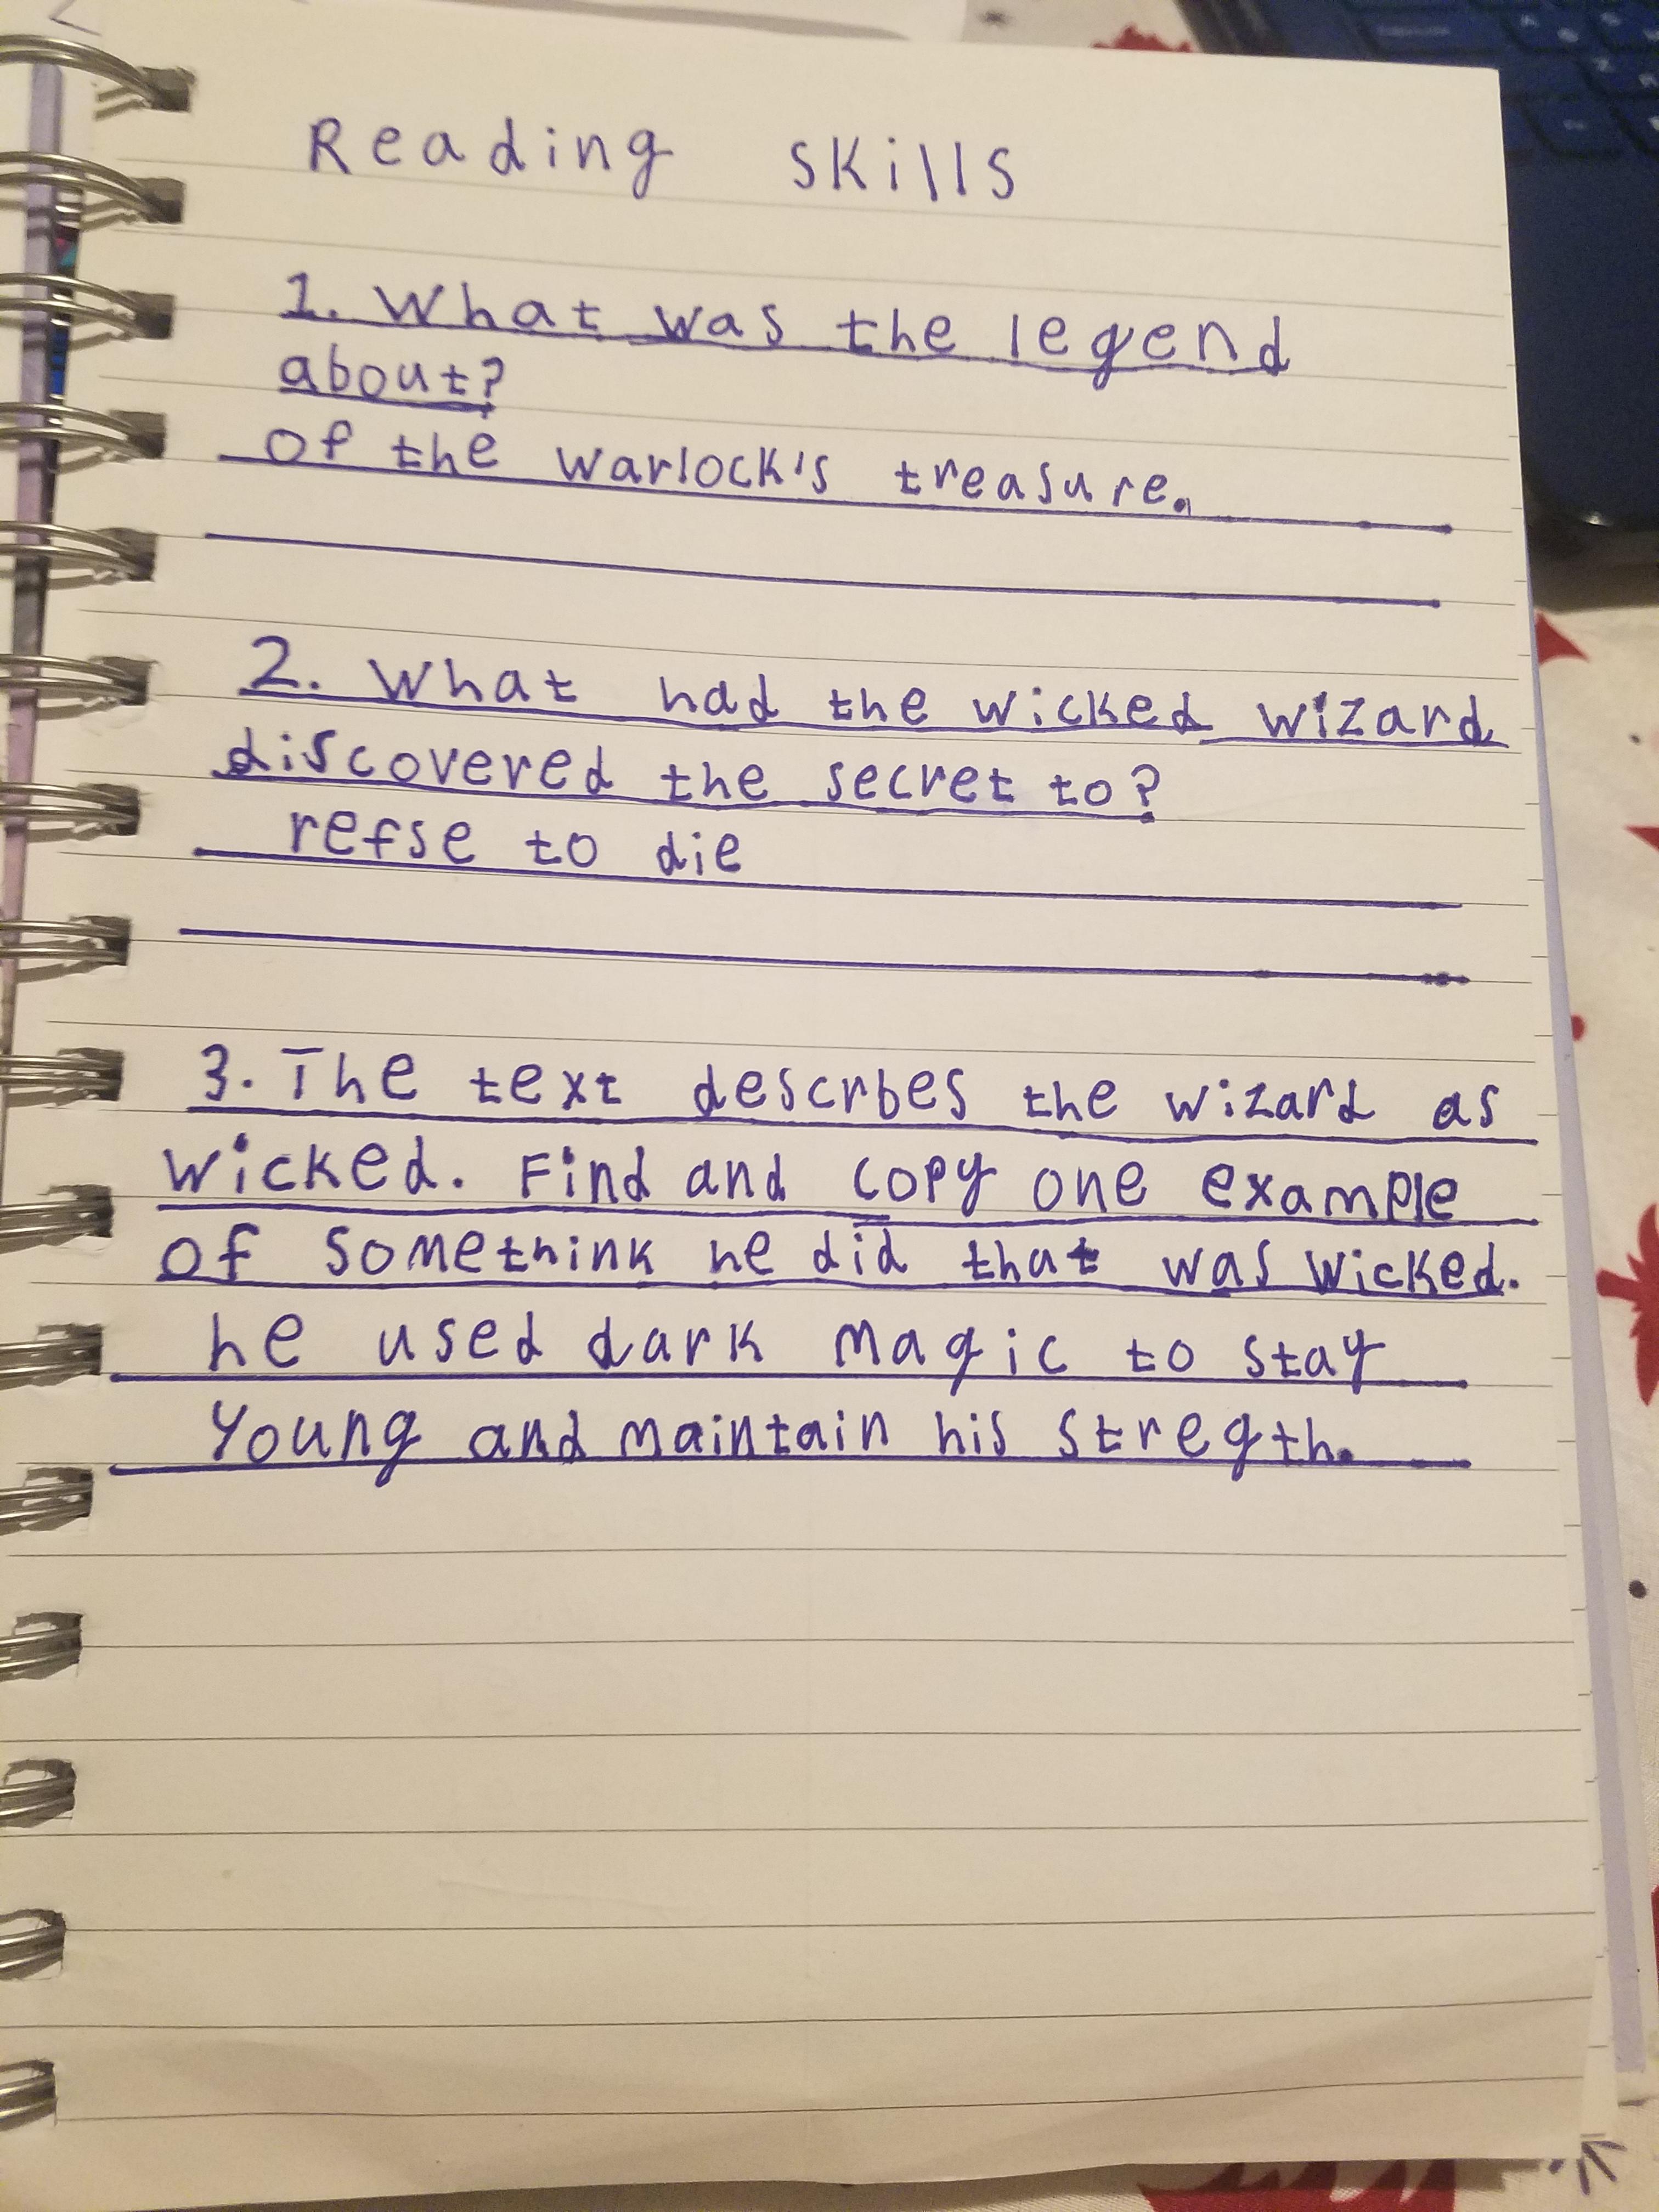 Reading skills
1. What was the legend
about?
of the warlock's treasure.
2. What had the wicked wizard
discovered the secret to?
refse to die
3. The text descrbes the wizard as
wicked. Find and copy one example
of somethink he did that was wicked.
he used dark magic to stay
Young and maintain his stregth.